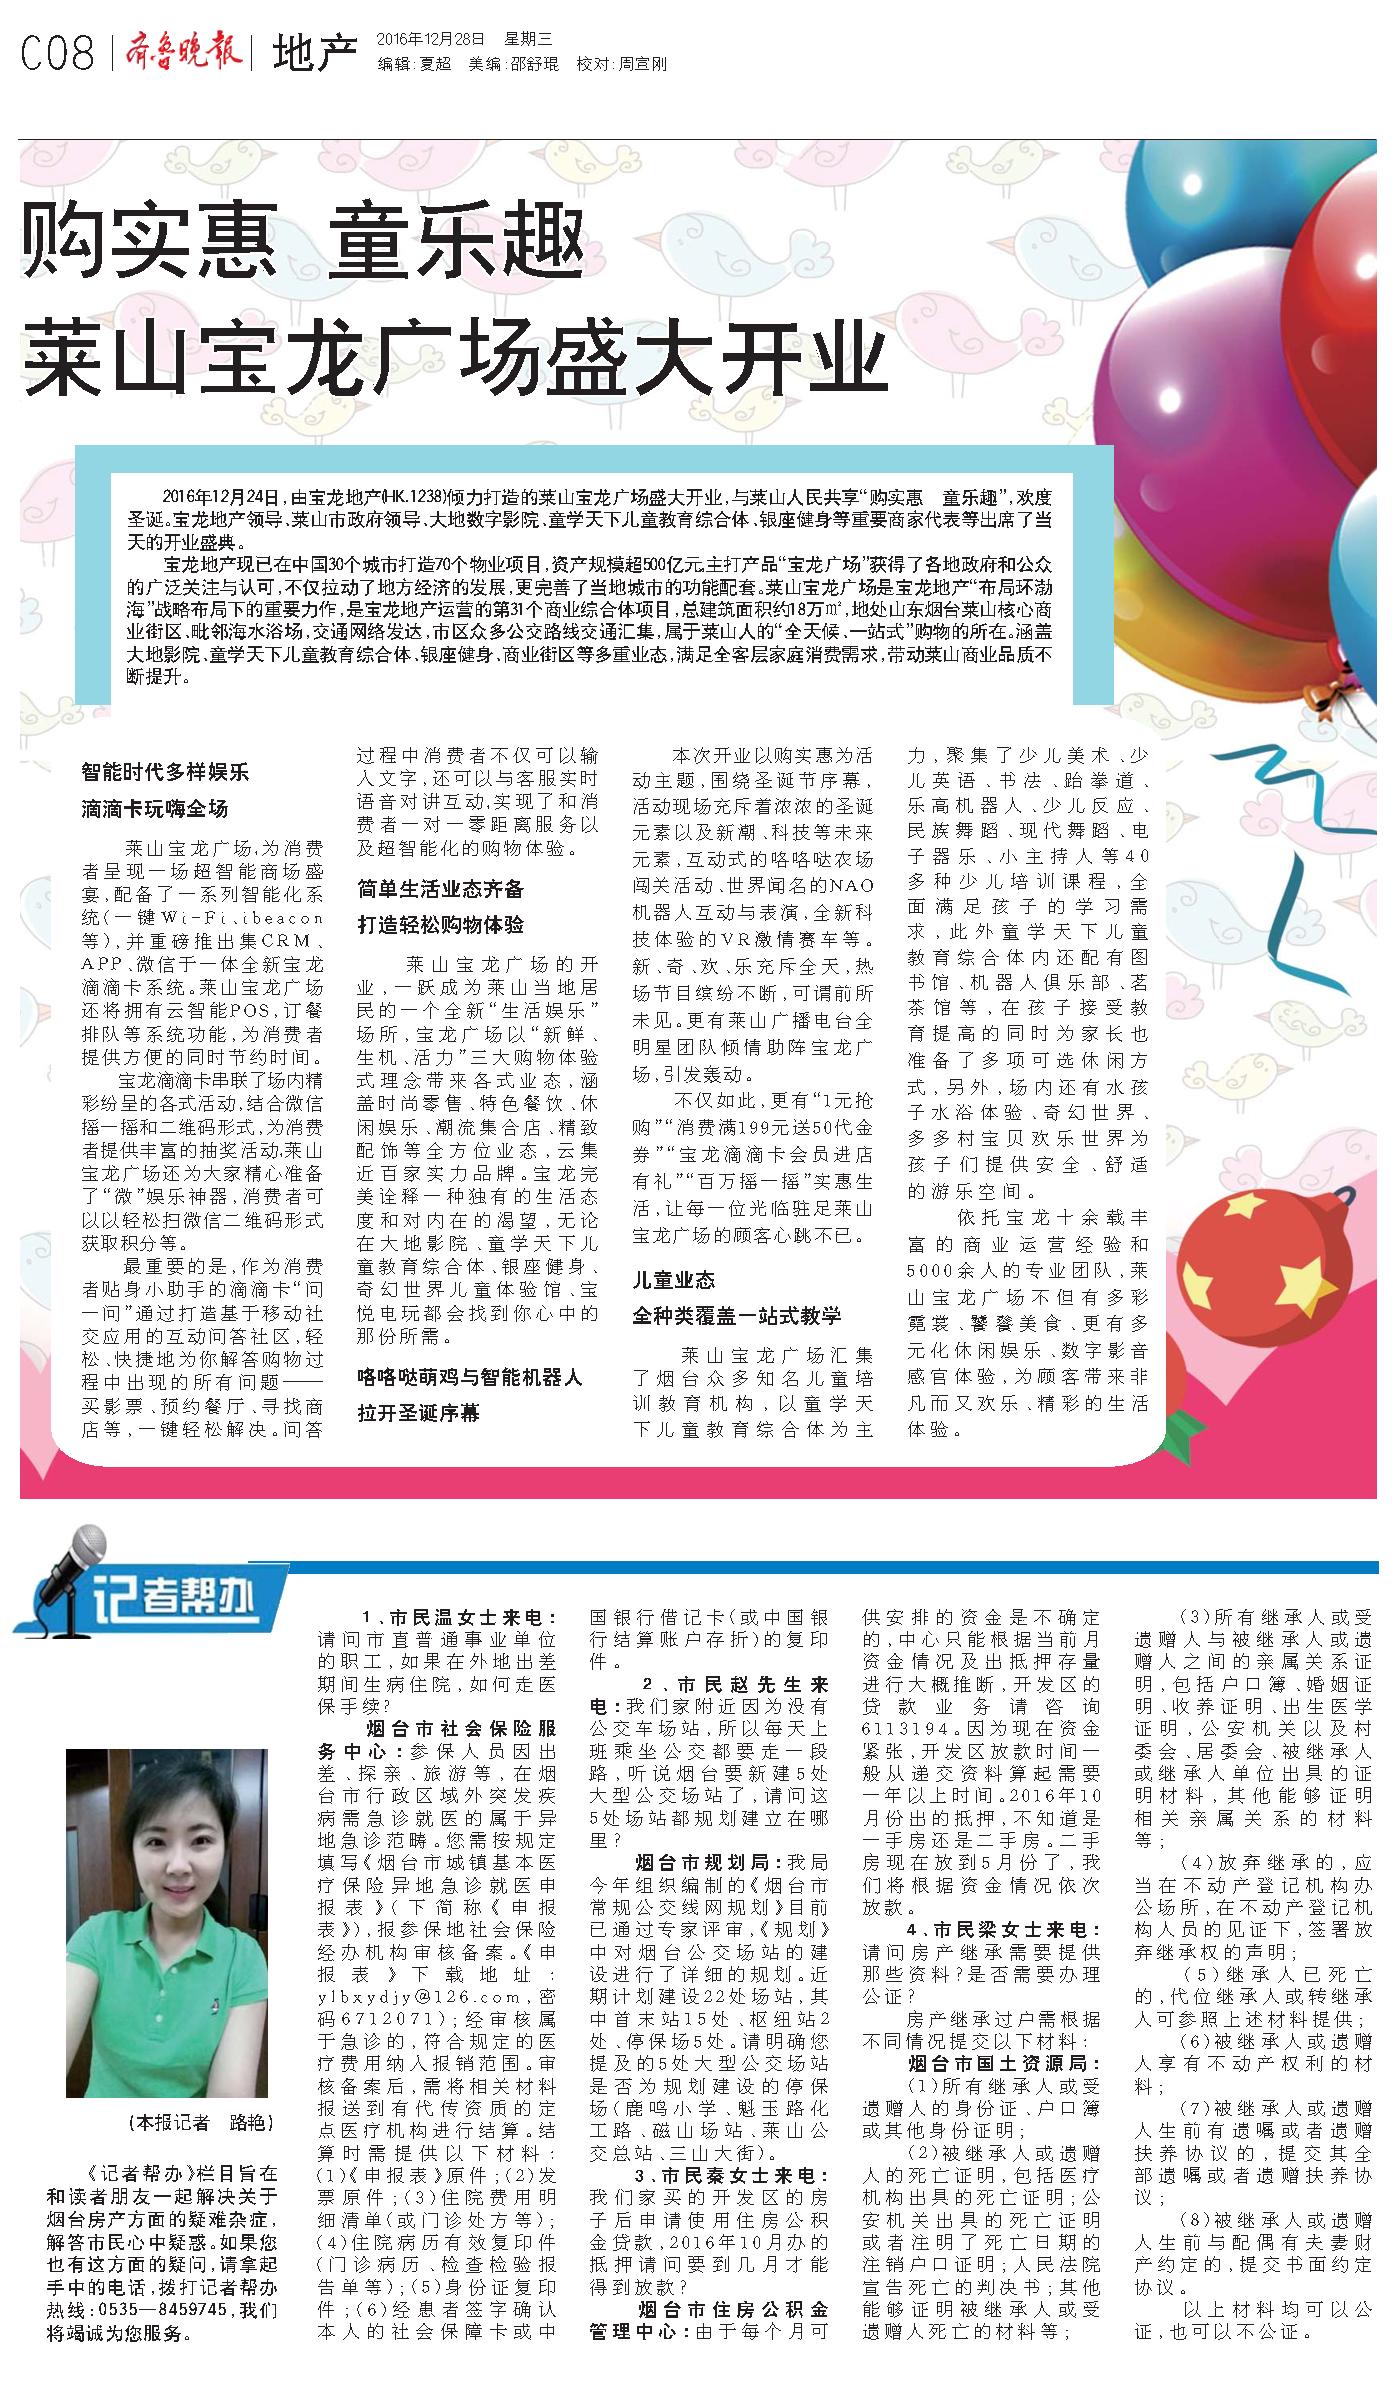 C08
齐鲁晚报
地产
2016年12月28日 星期三
编辑:夏超 美编:邵舒琨 校对:周宣刚
购实惠 童乐趣
莱山宝龙广场盛大开业
2016年12月24日,由宝龙地产(HK.1238)倾力打造的莱山宝龙广场盛大开业,与莱山人民共享“购实惠 童乐趣”,欢度
圣诞。宝龙地产领导、莱山市政府领导、大地数字影院、童学天下儿童教育综合体、银座健身等重要商家代表等出席了当
天的开业盛典。
宝龙地产现已在中国30个城市打造70个物业项目,资产规模超500亿元,主打产品“宝龙广场”获得了各地政府和公众
的广泛关注与认可,不仅拉动了地方经济的发展,更完善了当地城市的功能配套。莱山宝龙广场是宝龙地产“布局环渤
海”战略布局下的重要力作,是宝龙地产运营的第31个商业综合体项目,总建筑面积约18万㎡,地处山东烟台莱山核心商
业街区、毗邻海水浴场,交通网络发达,市区众多公交路线交通汇集,属于莱山人的“全天候、一站式”购物的所在。涵盖
大地影院、童学天下儿童教育综合体、银座健身、商业街区等多重业态,满足全客层家庭消费需求,带动莱山商业品质不
断提升。
智能时代多样娱乐
滴滴卡玩嗨全场
莱山宝龙广场,为消费
者呈现一场超智能商场盛
宴,配备了一系列智能化系
统(一键Wi-Fi、ibeacon
等),并重磅推出集CRM、
APP、微信于一体全新宝龙
滴滴卡系统。莱山宝龙广场
还将拥有云智能POS,订餐
排队等系统功能,为消费者
提供方便的同时节约时间。
宝龙滴滴卡串联了场内精
彩纷呈的各式活动,结合微信
摇一摇和二维码形式,为消费
者提供丰富的抽奖活动,莱山
宝龙广场还为大家精心准备
了“微”娱乐神器,消费者可
以以轻松扫微信二维码形式
获取积分等。
最重要的是,作为消费
者贴身小助手的滴滴卡“问
一问”通过打造基于移动社
交应用的互动问答社区,轻
松、快捷地为你解答购物过
程中出现的所有问题——
买影票、预约餐厅、寻找商
店等,一键轻松解决。问答
过程中消费者不仅可以输
入文字,还可以与客服实时
语音对讲互动,实现了和消
费者一对一零距离服务以
及超智能化的购物体验。
简单生活业态齐备
打造轻松购物体验
莱山宝龙广场的开
业,一跃成为莱山当地居
民的一个全新“生活娱乐”
场所,宝龙广场以“新鲜、
生机、活力”三大购物体验
式理念带来各式业态,涵
盖时尚零售、特色餐饮、休
闲娱乐、潮流集合店、精致
配饰等全方位业态,云集
近百家实力品牌。宝龙完
美诠释一种独有的生活态
度和对内在的渴望,无论
在大地影院、童学天下儿
童教育综合体、银座健身、
奇幻世界儿童体验馆、宝
悦电玩都会找到你心中的
那份所需。
咯咯哒萌鸡与智能机器人
拉开圣诞序幕
本次开业以购实惠为活
动主题,围绕圣诞节序幕,
活动现场充斥着浓浓的圣诞
元素以及新潮、科技等未来
元素,互动式的咯咯哒农场
闯关活动、世界闻名的NAO
机器人互动与表演,全新科
技体验的VR激情赛车等。
新、奇、欢、乐充斥全天,热
场节目缤纷不断,可谓前所
未见。更有莱山广播电台全
明星团队倾情助阵宝龙广
场,引发轰动。
不仅如此,更有“1元抢
购”“消费满199元送50代金
券”“宝龙滴滴卡会员进店
有礼”“百万摇一摇”实惠生
活,让每一位光临驻足莱山
宝龙广场的顾客心跳不已。
儿童业态
全种类覆盖一站式教学
莱山宝龙广场汇集
了烟台众多知名儿童培
训教育机构,以童学天
下儿童教育综合体为主
力,聚集了少儿美术、少
儿英语、书法、跆拳道、
乐高机器人、少儿反应、
民族舞蹈、现代舞蹈、电
子器乐、小主持人等40
多种少儿培训课程,全
面满足孩子的学习需
求,此外童学天下儿童
教育综合体内还配有图
书馆、机器人俱乐部、茗
茶馆等,在孩子接受教
育提高的同时为家长也
准备了多项可选休闲方
式,另外,场内还有水孩
子水浴体验、奇幻世界、
多多村宝贝欢乐世界为
孩子们提供安全、舒适
的游乐空间。
依托宝龙十余载丰
富的商业运营经验和
5000余人的专业团队,莱
山宝龙广场不但有多彩
霓裳、饕餮美食、更有多
元化休闲娱乐、数字影音
感官体验,为顾客带来非
凡而又欢乐、精彩的生活
体验。
记者帮办
(本报记者 路艳)
《记者帮办》栏目旨在
和读者朋友一起解决关于
烟台房产方面的疑难杂症,
解答市民心中疑惑。如果您
也有这方面的疑问,请拿起
手中的电话,拨打记者帮办
热线:0535—8459745,我们
将竭诚为您服务。
1、市民温女士来电:
请问市直普通事业单位
的职工,如果在外地出差
期间生病住院,如何走医
保手续?
烟台市社会保险服
务中心:参保人员因出
差、探亲、旅游等,在烟
台市行政区域外突发疾
病需急诊就医的属于异
地急诊范畴。您需按规定
填写《烟台市城镇基本医
疗保险异地急诊就医申
报表》(下简称《申报
表》),报参保地社会保险
经办机构审核备案。《申
报表》下载地址:
ylbxydjy@126.com,密
码6712071);经审核属
于急诊的,符合规定的医
疗费用纳入报销范围。审
核备案后,需将相关材料
报送到有代传资质的定
点医疗机构进行结算。结
算时需提供以下材料:
(1)《申报表》原件;(2)发
票原件;(3)住院费用明
细清单(或门诊处方等);
(4)住院病历有效复印件
(门诊病历、检查检验报
告单等);(5)身份证复印
件;(6)经患者签字确认
本人的社会保障卡或中
国银行借记卡(或中国银
行结算账户存折)的复印
件。
2、市民赵先生来
电:我们家附近因为没有
公交车场站,所以每天上
班乘坐公交都要走一段
路,听说烟台要新建5处
大型公交场站了,请问这
5处场站都规划建立在哪
里?
烟台市规划局:我局
今年组织编制的《烟台市
常规公交线网规划》目前
已通过专家评审,《规划》
中对烟台公交场站的建
设进行了详细的规划。近
期计划建设22处场站,其
中首末站15处、枢纽站2
处、停保场5处。请明确您
提及的5处大型公交场站
是否为规划建设的停保
场(鹿鸣小学、魁玉路化
工路、磁山场站、莱山公
交总站、三山大街)。
3、市民秦女士来电:
我们家买的开发区的房
子后申请使用住房公积
金贷款,2016年10月办的
抵押请问要到几月才能
得到放款?
烟台市住房公积金
管理中心:由于每个月可
供安排的资金是不确定
的,中心只能根据当前月
资金情况及出抵押存量
进行大概推断,开发区的
贷款业务请咨询
6113194。因为现在资金
紧张,开发区放款时间一
般从递交资料算起需要
一年以上时间。2016年10
月份出的抵押,不知道是
一手房还是二手房。二手
房现在放到5月份了,我
们将根据资金情况依次
放款。
4、市民梁女士来电:
请问房产继承需要提供
那些资料?是否需要办理
公证?
房产继承过户需根据
不同情况提交以下材料:
烟台市国土资源局:
(1)所有继承人或受
遗赠人的身份证、户口簿
或其他身份证明;
(2)被继承人或遗赠
人的死亡证明,包括医疗
机构出具的死亡证明;公
安机关出具的死亡证明
或者注明了死亡日期的
注销户口证明;人民法院
宣告死亡的判决书;其他
能够证明被继承人或受
遗赠人死亡的材料等;
(3)所有继承人或受
遗赠人与被继承人或遗
赠人之间的亲属关系证
明,包括户口簿、婚姻证
明、收养证明、出生医学
证明,公安机关以及村
委会、居委会、被继承人
或继承人单位出具的证
明材料,其他能够证明
相关亲属关系的材料
等;
(4)放弃继承的,应
当在不动产登记机构办
公场所,在不动产登记机
构人员的见证下,签署放
弃继承权的声明;
(5)继承人已死亡
的,代位继承人或转继承
人可参照上述材料提供;
(6)被继承人或遗赠
人享有不动产权利的材
料;
(7)被继承人或遗赠
人生前有遗嘱或者遗赠
扶养协议的,提交其全
部遗嘱或者遗赠扶养协
议;
(8)被继承人或遗赠
人生前与配偶有夫妻财
产约定的,提交书面约定
协议。
以上材料均可以公
证,也可以不公证。